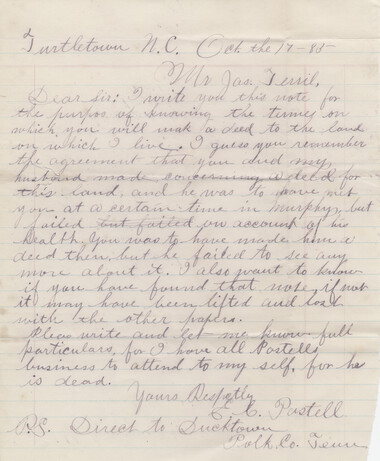 Turtletown N.C. Oct. the 17 - 85
Mr Jas. Terril,
Dear Sir: I write you this note for
the purpos of knowing the times on
which you will mak a deed to the land
on which I live. I guess you remember
the agreement that you and my
husband made concerning a deed for
this land, and he was to have met
you at a certain time in Murphy, but
failed but failed on account of his
health. You was to have made him a
deed then, but he failed to see any
more about it. I also want to know
if you have found that note, if not
it may have been lifted and lost
with the other papers.
Pleas write and let me know full
particulars, for I have all Postells
business to attend to my self, for he
is dead.
Yours Respctly
E. C. Postell
P.S. Direct to Ducktown
Polk Co. Tenn